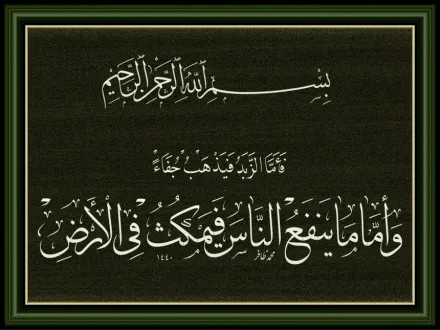 بِسْمِ اللَّهِ الرَّحْمَنِ الرَّحِيمِ
فَأَمَّا الزَّبَدُ فَيَذْهَبُ جُفَاءً
وَأَمَّا مَا يَنفَعُ النَّاسَ فَيَمْكُثُ فِي الْأَرْضِ
محمد ظافر ١٤٤٠